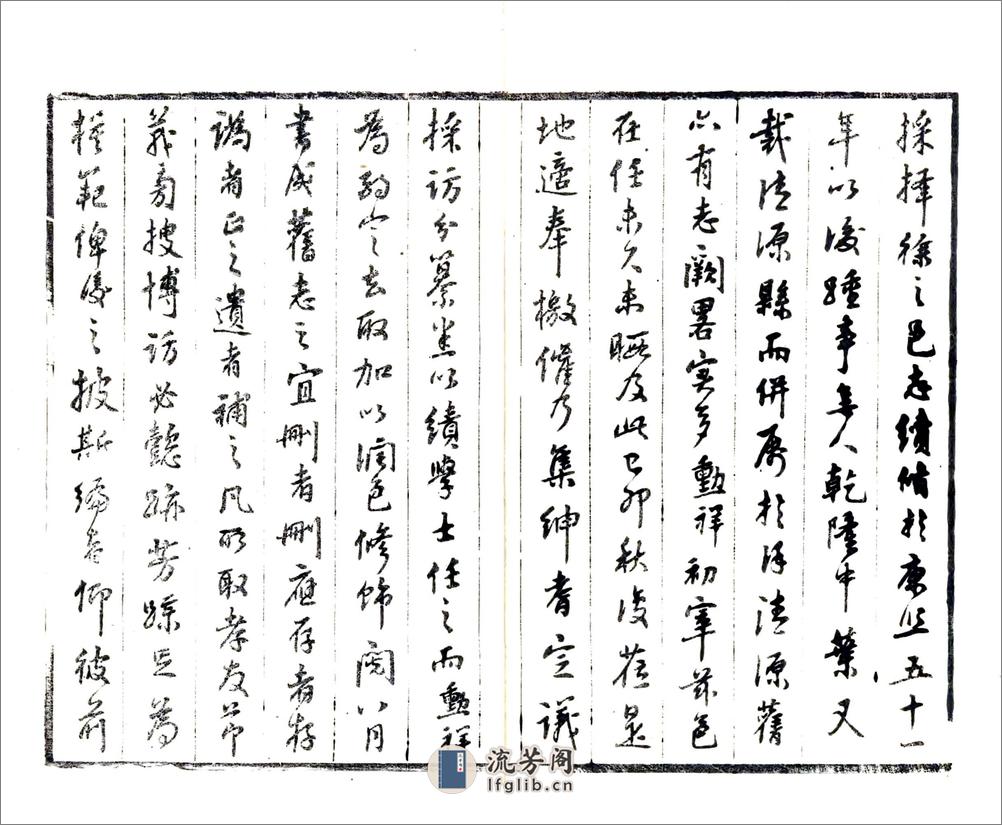 採擇徐之邑志續脩於康熙五十一
年以後踵事無人乾隆中葉又
裁清源縣而併屬於徐清源舊
亦有志闕畧実多勲祥初宰茲邑
在任未久未暇及此己卯秋復蒞是
地適奉檄催乃集紳耆定議
採訪分纂悉以績學士任之而勲祥
為酌定去取加以潤色修飾閱八月
書成舊志之宜刪者刪應存者存
譌者正之遺者補之凡所取孝友節
義旁搜博訪必懿跡芳蹤足為
模範俾後之披斯編者仰彼前
流芳阁
lfglib.cn